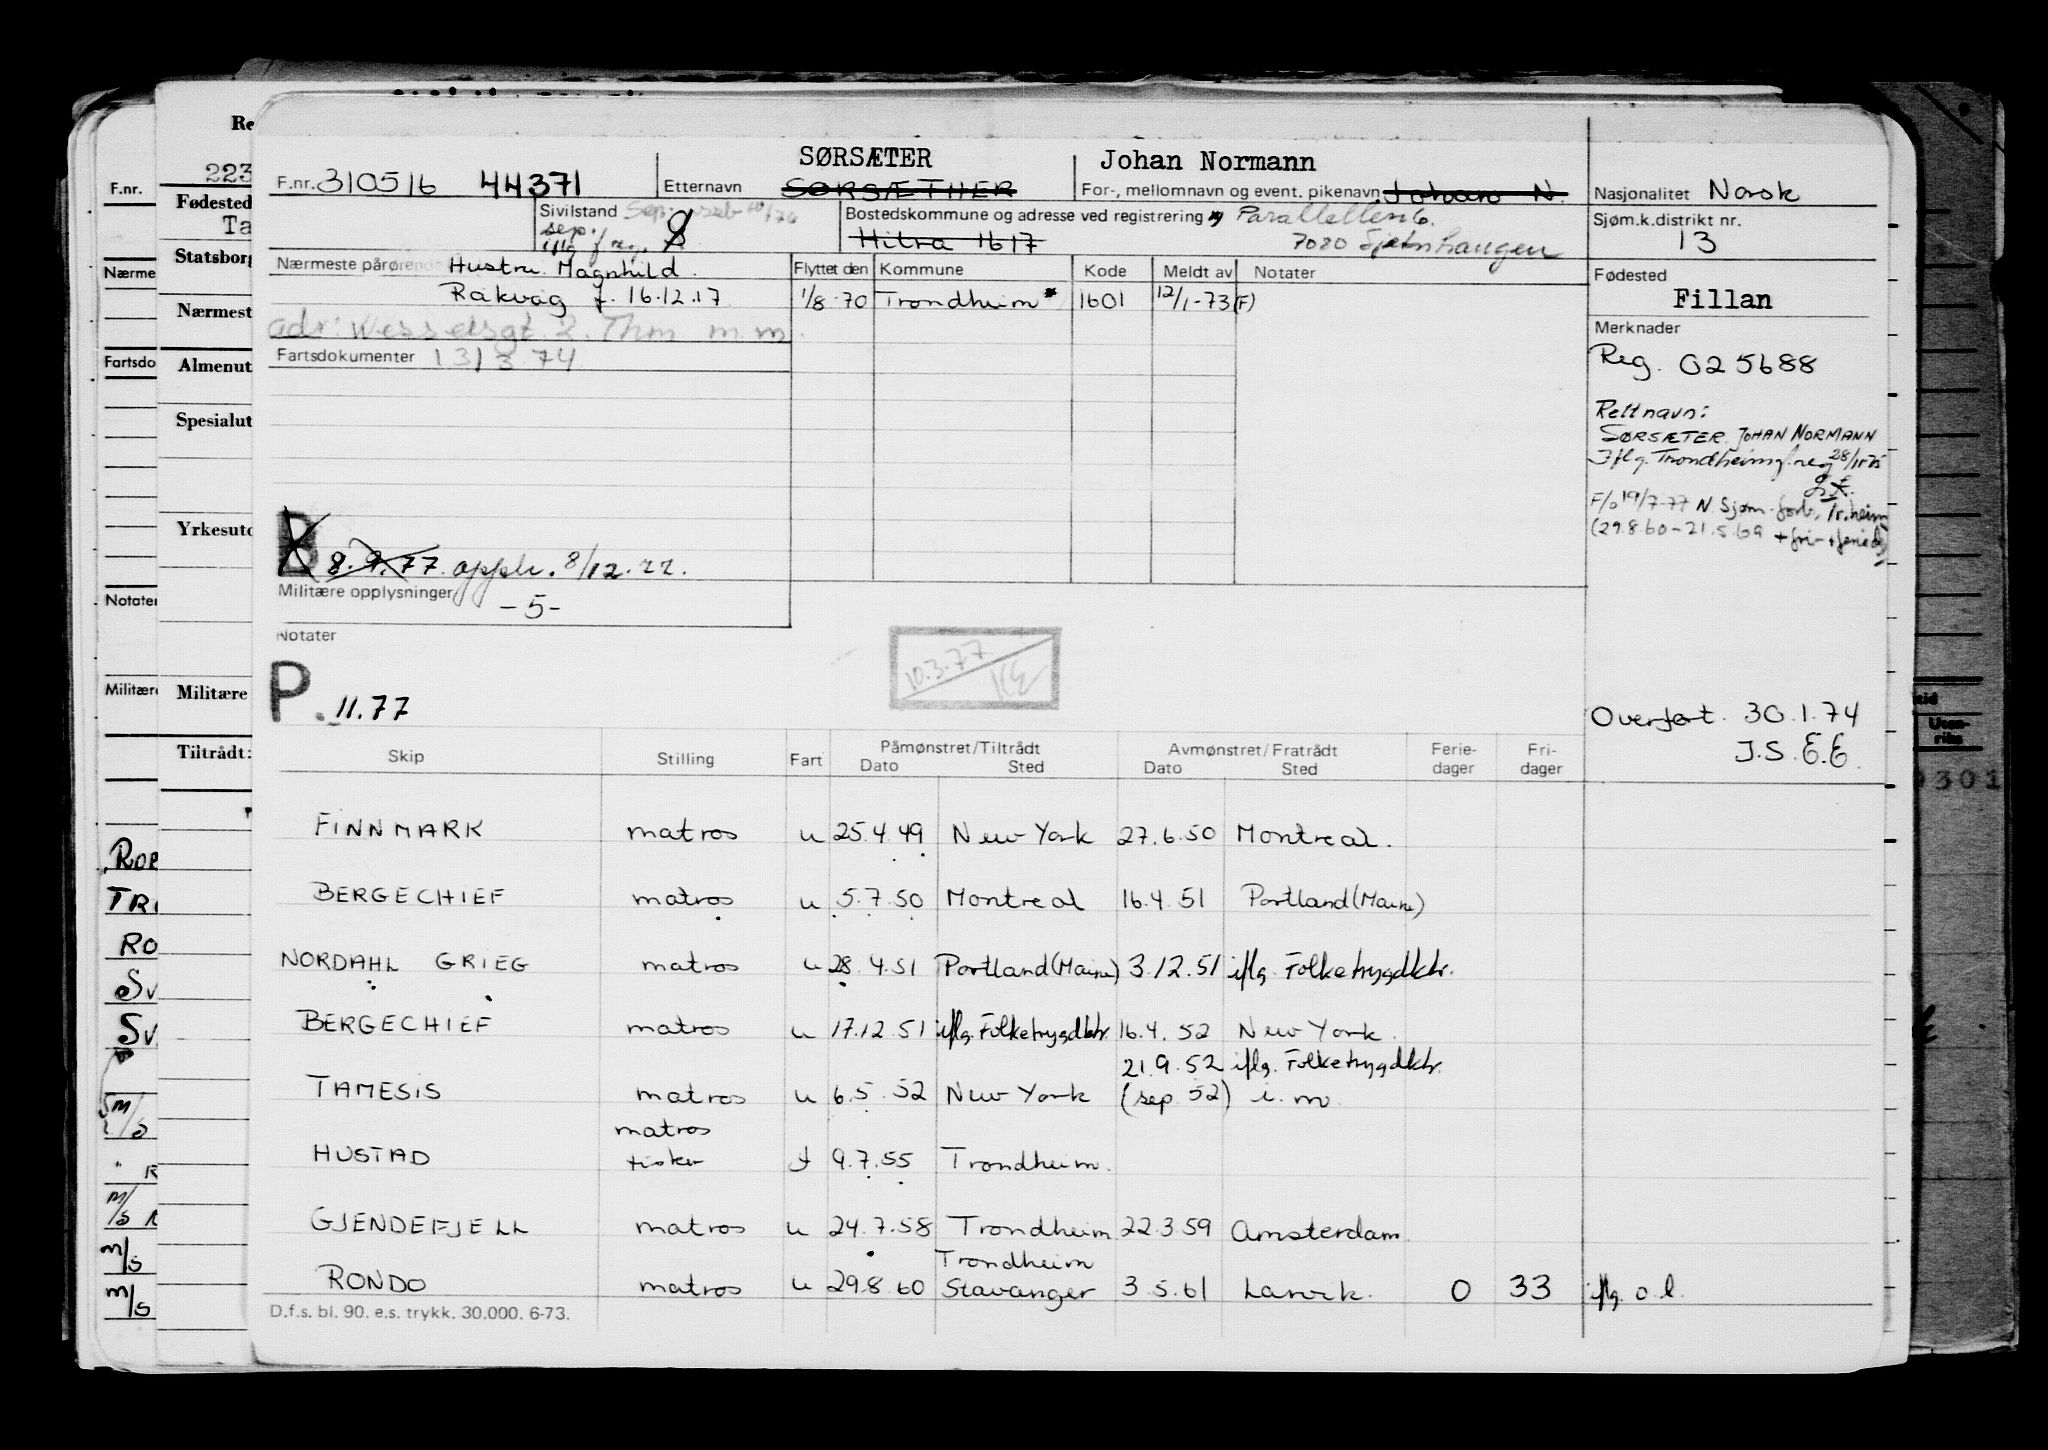 SØRSÆTER Johan Normann
F.nr. 310516 44371 Etternavn SØRSÆTHER For-, mellomnavn og event. pikenavn Johan N. Nasjonalitet Norsk
Sivilstand sep. Bostedskommune og adresse ved registrering Parallellen 6. Sjøm.k.distrikt nr.
iflg f reg. Hitra 1617 7080 13
Nærmeste pårørende Hustru Magnhild Flyttet den Kommune Kode Meldt av Notater Fødested
Råkvåg f. 16.12.17 1/8-70 Trondheim* 1601 12/1-73(F) Fillan
adr: Wesselsgt. 2. Thm m.m. Merknader
Fartsdokumenter 131374 Reg. 025688
Rett navn:
SØRSÆTER, JOHAN NORMANN
Iflg. Trondheim f.reg 28/11-75
F/o 19/7-77 N. Sjøm.forb, Tr.heim
(29.8.60-21.5.69 +fri-+feried)
B 8.9.77. oppln. 8/12.77.
Militære opplysninger -5-
Notater
10.3.77
P .11.77
Overført 30.1.74
J.S.E.E.
Skip Stilling Fart Påmønstret/Tiltrådt Avmønstret/Fratrådt Ferie-dager Fri-dager
Dato Sted Dato Sted
FINNMARK matros u 25.4.49 New York 27.6.50 Montreal.
BERGECHIEF matros u 5.7.50 Montreal 16.4.51 Portland (Maine)
NORDAHL GRIEG matros u 28.4.51 Portland (Maine) 3.12.51 iflg. Folketrygdktr.
BERGECHIEF matros u 17.12.51 iflg. Folketrygdktr. 16.4.52 New York.
21.9.52 iflg. Folketrygdktr.
TAMESIS matros u 6.5.52 New York (sep 52) i.m.
matros
HUSTAD fisker f 9.7.55 Trondheim.
GJENDEFJELL matros u 24.7.58 Trondheim 22.3.59 Amsterdam
Trondheim
RONDO matros u 29.8.60 Stavanger 3.5.61 Larvik. 0 33 iflg. o.l.
D.f.s. bl. 90. e.s. trykk. 30.000. 6-73.
Re
223
F.nr.
Fødested
Ta
Statsborg
Nærme
Nærmest
Fartsdo
Almenut
Spesialut
Yrkesutd
Notater
Militære
Militære
Tiltrådt:
ROE
TRI
RO
SV
SV
M/S
R
M/S
M/S
M/S
Uten-
riks
0301